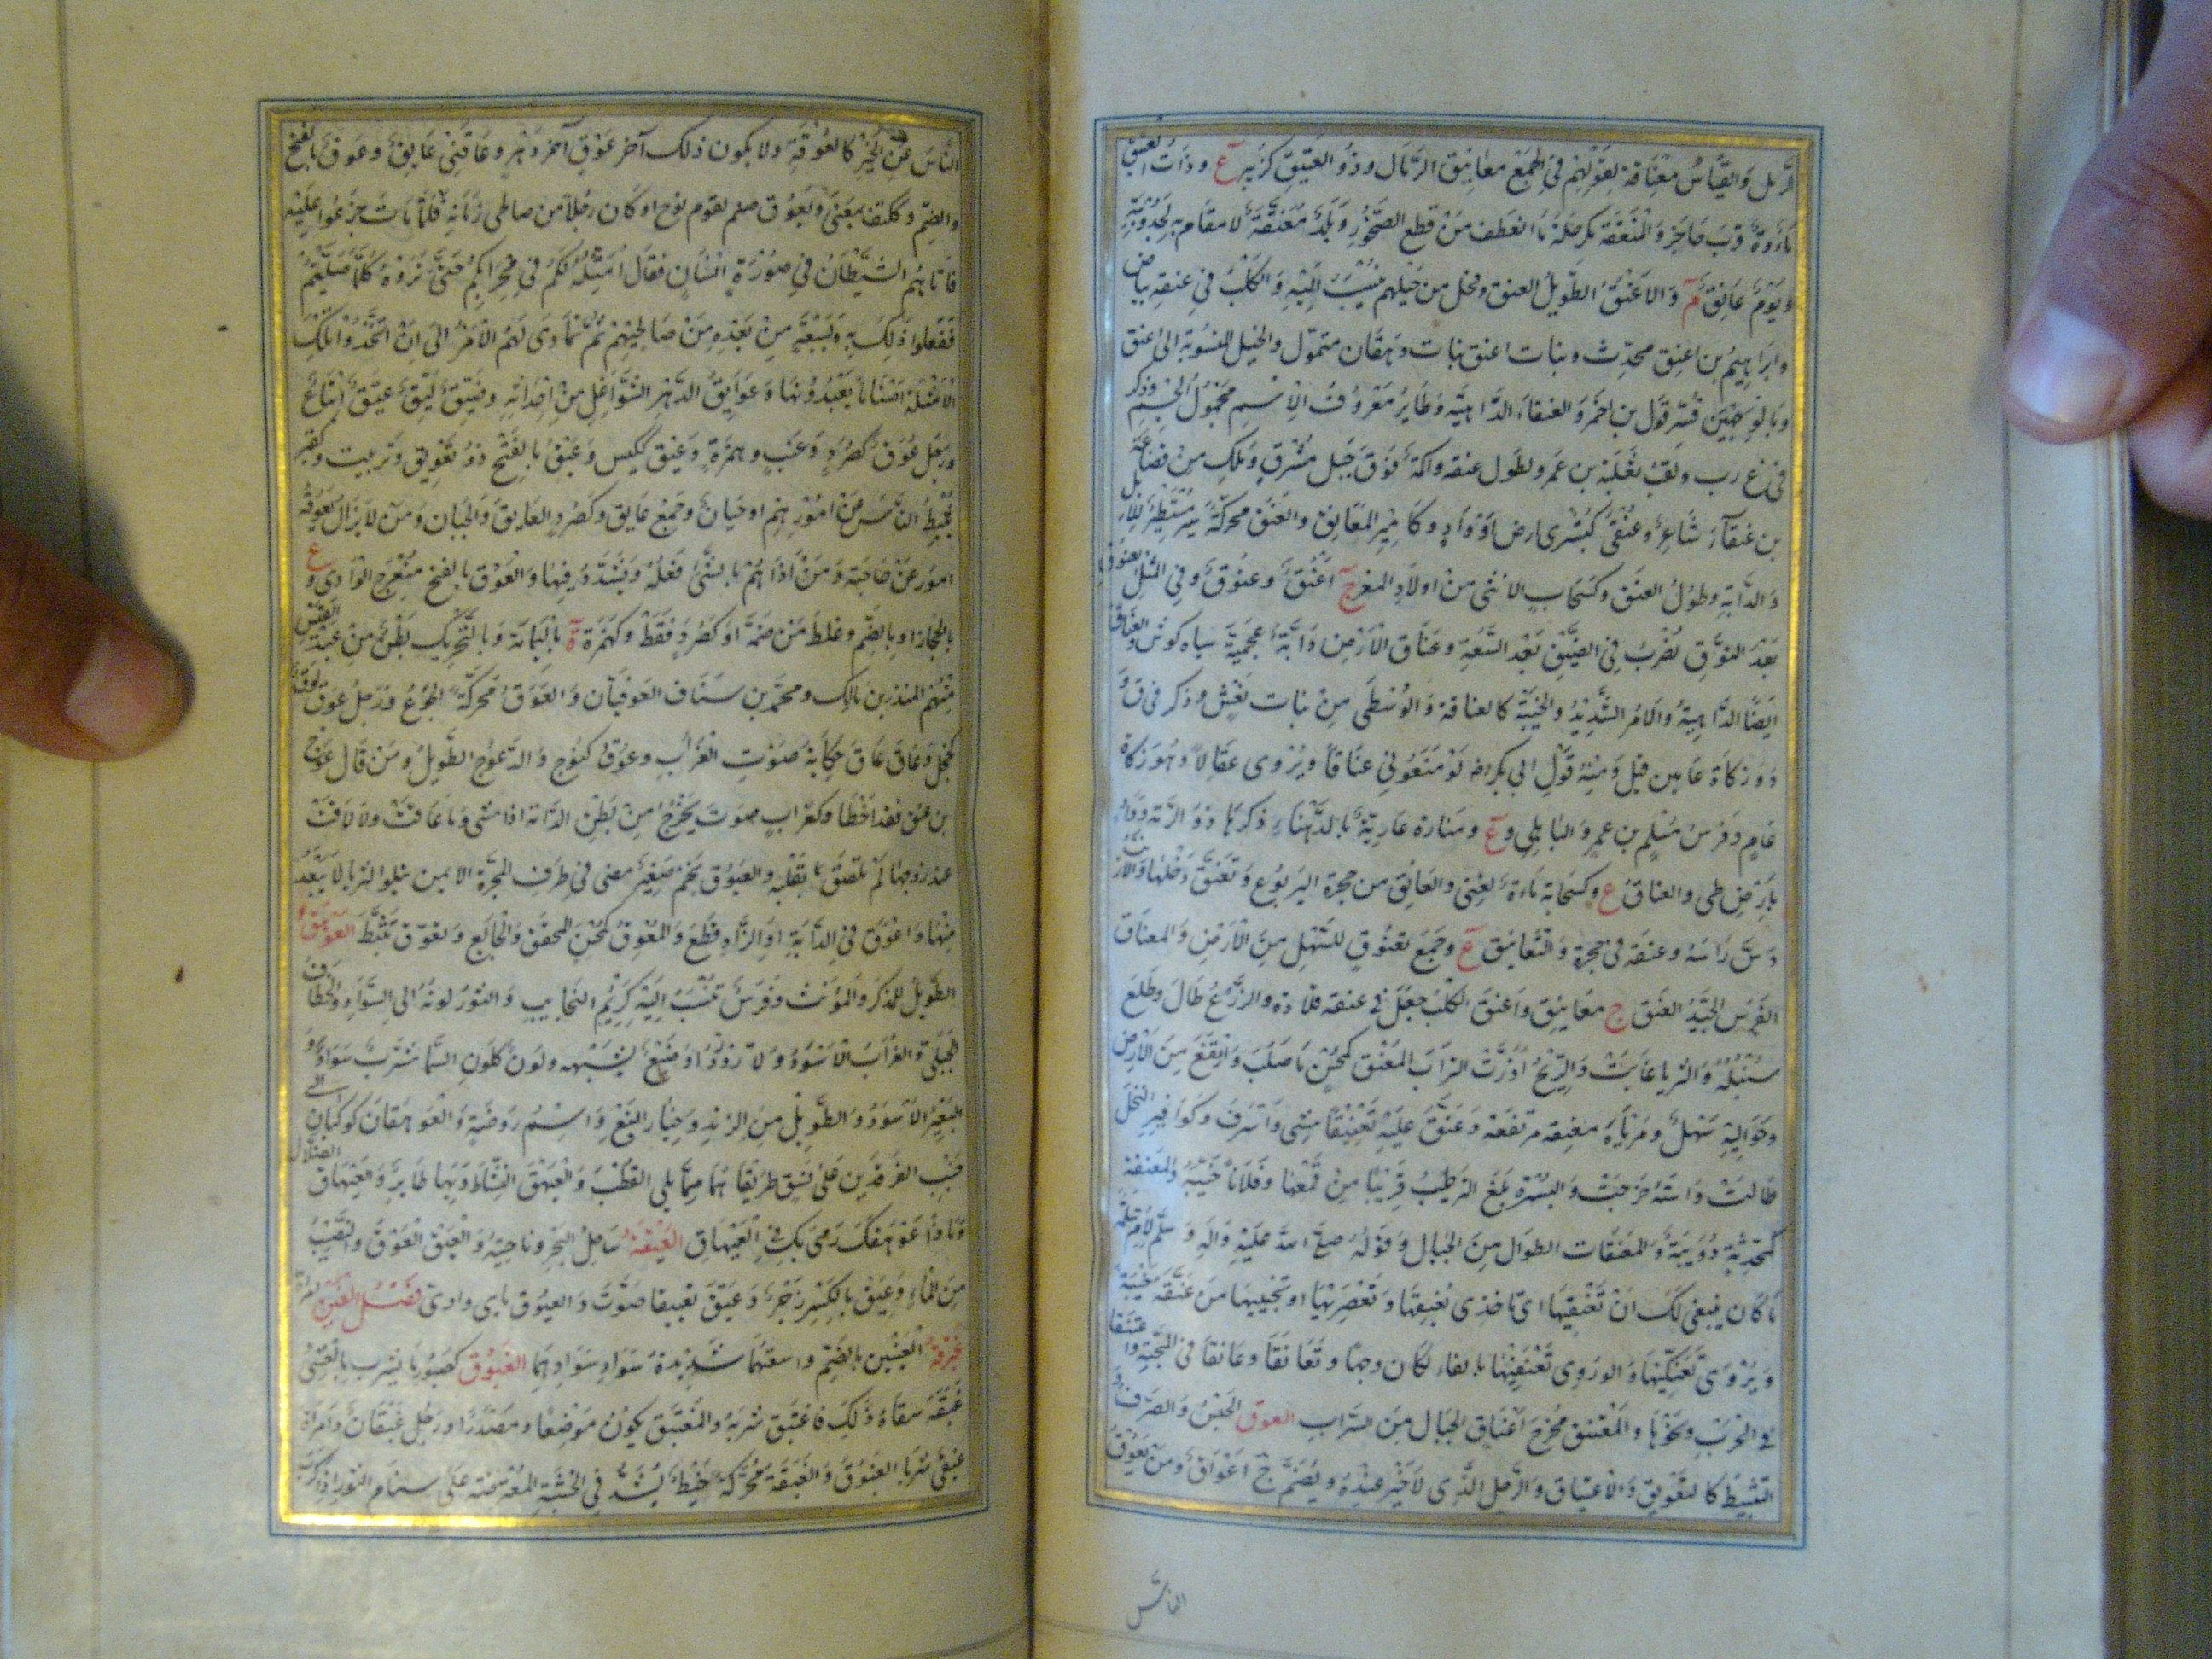 الرَّمل والقياس مِعناقة لقولهم في الجمع معانيق الرمال وذو العنيق كزبير ع وذات العنيق
ماءة قرب حاجر والمنعقة كمرحلة ما انعطف من قطع الصخور وبلد معنقة لا مقام به لجدوبته
ويوم عانق م والاعنق الطويل العنق وفحل من خيلهم ينسب اليه والكلب في عنقه بياض
وابراهيم بن اعنق محدث وبنات اعنق بنات دهقان متمول والخيل المنسوبة الى اعنق
وبالوجهين فسر قول بن احمر والعنقاء الداهية وطاير معروف الاسم مجهول الجسم وذكر
في غ رب ولقب ثعلبة بن عمرو لطول عنقه واكمة فوق جبل مشرف وملك من قضاعة
بن عنقاء شاعر وعنقى كبشرى ارض او واد وكامير المعانق والعنق محركة سير مسبطر للابل
والدابة وطول العنق وكسحاب الانثى من اولاد المعز ج اعنق وعنوق وفي المثل العنوق
بعد النوق تضرب في الضيق بعد السعة وعناق الارض دابة عجمية سياه كوش والعناق
ايضا الداهية والامر الشديد والخيبة كالعناقة والوسطى من بنات نعش وذكر في ق و
د وزكاة عامين قيل ومنه قول ابي بكر رضه لو منعوني عناقا ويروى عقالا وهو زكاة
عام وفرس مسلم بن عمرو الباهلي وع ومنارة عادية بالدهناء ذكرها ذو الرمة وواد
بارض طى والعناقان ع وكسحابة ماءة لغنى والعانق من حجرة اليربوع وتعنق دخلها والارنب
دس راسه وعنقه في حجره والتعانيق ع وجمع تعنوق للسهل من الارض والمعناق
الفرس الجيد العنق ج معانيق واعنق الكلب جعل في عنقه قلادة والزرع طال وطلع
سنبله والثريا غابت والريح اذرت التراب المعنق كمحسن ما صلب وارتفع من الارض
وحواليه سهل ومرباة معنقة مرتفعة وعنق عليه تعنيقا مشى واشرف وكوافير النخل
طالت واسته خرجت والبسرة بلغ الترطيب قريبا من قمعها وفلانا خيبه والمعنقة
كمحدثة دويبة والمعنقات الطوال من الجبال وقوله صلى الله عليه واله وسلم لام سلمة
ما كان ينبغي لك ان تعنقيها اى تاخذى بعنقها وتعصرتها او تخيبيها من عنقه خيبه
ويروى تعنكيها ولو روى تعنفيها بالفاء لكان وجها وتعانقا وعانقا في المحبة واعتنقا
في الحرب ونحوها والمعتنق مخرج اعناق الجبال من السراب العوق الحبس والصرف و
التثبيط كالتعويق والاعتياق والرجل الذى لا خير عنده ويضم ج اعواق ومن يعوق
الناس
الناس عن الخير كالعوقة ولا يكون ذلك آخر عوق آخر دهر وعاقني عايق وعوق بالفتح
والضم وككتف بمعنى ويعوق صنم لقوم نوح او كان رجلا من صالحى زمانه فلما مات جزعوا عليه
فاتاهم الشيطان في صورة انسان فقال امثله لكم في محرابكم حتى تروه كلما صليتم
ففعلوا ذلك به وبسبعة من بعده من صالحيهم ثم تمادى لهم الامر الى ان اتخذوا تلك
الامثلة اصناما يعبدونها وعوايق الدهر الشواغل من احداثه وضيق ليق عيق اتباع
ورجل عوق كصرد وعنب وهمزة وعيق ككيس وعيق بالفتح ذو تعويق وتربيث وكقبر
يحبط الناس من امورهم او جبان وجمع عايق وكصرد العايق والجبان ومن لا يزال تعوقه
امور عن حاجته ومن اذا هم بالشئ فعله ويشدد فيهما والعوق بالفتح منعرج الوادى وع
بالحجاز او بالضم وغلط من ضمه او كصرد فقط وكهمزة ة باليمامة وبالتحريك بطن من عبد القيس
منهم المنذر بن مالك ومحمد بن سنان العوقيان والعوق محركة الجوع ورجل عوق لوق
كخجل وعاق عاق حكاية صوت الغراب وعوق كنوح والد عوج الطويل ومن قال عوج
بن عنق فقد اخطا وكغراب صوت يخرج من بطن الدابة اذا مشى وما عاقت ولا لاقت
عند زوجها لم تلصق بقلبه والعيوق نجم صغير مضى في طرف المجرة الايمن يتلو الثريا لا يتقدمها
منها واعوق في الدابة او الزاد قطع والمعوق كمحسن المخفق والجايع وتعوق تثبط العوهق
الطويل للمذكر والمونث وفرس تنسب اليه كريم النجايب والثور لونه الى السواد والخطاف
الجبلي والغراب الاسود ولازورد او صبغ يشبهه ولون كلون السما مشرب سوادا و
البعير الاسود والطويل من الربد وخيار النبع واسم روضة والعوهقان كوكبان الى
جنب الفرقدين على نسق طريقاهما مما يلي القطب والعيهق النشاط وبهاء طاير والعيهاق الضلال
وماذا عوهقك رمى بك في العيهاق العيقة ساحل البحر وناحيته والعيق العوق والنصيب
من الماء وعيق بالكسر زجر وعيق تعييقا صوت والعيوق ياى واوى فصل الغين
غبرقة العينين بالضم واسعتهما شديدة سواد سوادهما الغبوق كصبور ما يشرب بالعشى
غبقه سقاه ذلك فاغتبق شربه والمغتبق يكون موضعا ومصدرا ورجل غبقان وامراة
غبقى شربا الغبوق والغبقة محركة خيط يشد في الخشبة المعترضة على سنام الثور اذا كرب